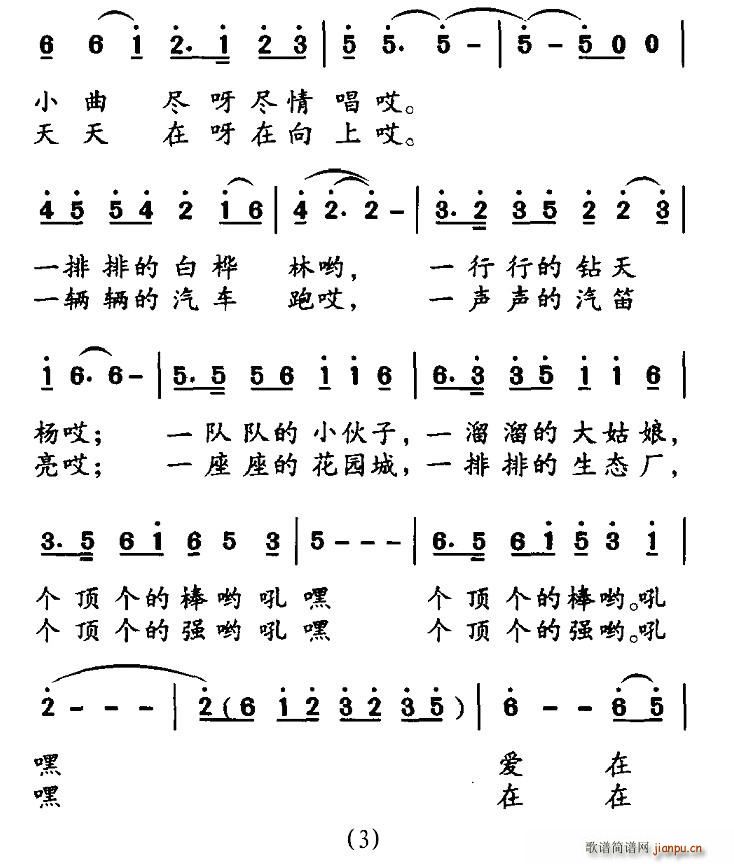 6 6 1 2. 1 2 3 | 5 5. 5 - | 5 - 5 0 0 |
小曲 尽呀尽情唱哎。
天天 在呀在向上哎。
4 5 5 4 2 1 6 | 4 2. 2 - | 3. 2 3 5 2 2 3 |
一排排的白桦 林哟, 一行行的钻天
一辆辆的汽车 跑哎, 一声声的汽笛
1 6. 6 - | 5. 5 5 6 1 1 6 | 6. 3 3 5 1 1 6 |
杨哎; 一队队的小伙子,一溜溜的大姑娘,
亮哎; 一座座的花园城,一排排的生态厂,
3. 5 6 1 6 5 3 | 5 - - - | 6. 5 6 1 5 3 1 |
个顶个的棒哟吼嘿 个顶个的棒哟。吼
个顶个的强哟吼嘿 个顶个的强哟。吼
2 - - - | 2 ( 6 1 2 3 2 3 5 ) | 6 - - 6 5 |
嘿 爱 在
嘿 在 在
(3)
歌谱简谱网
jianpu.cn